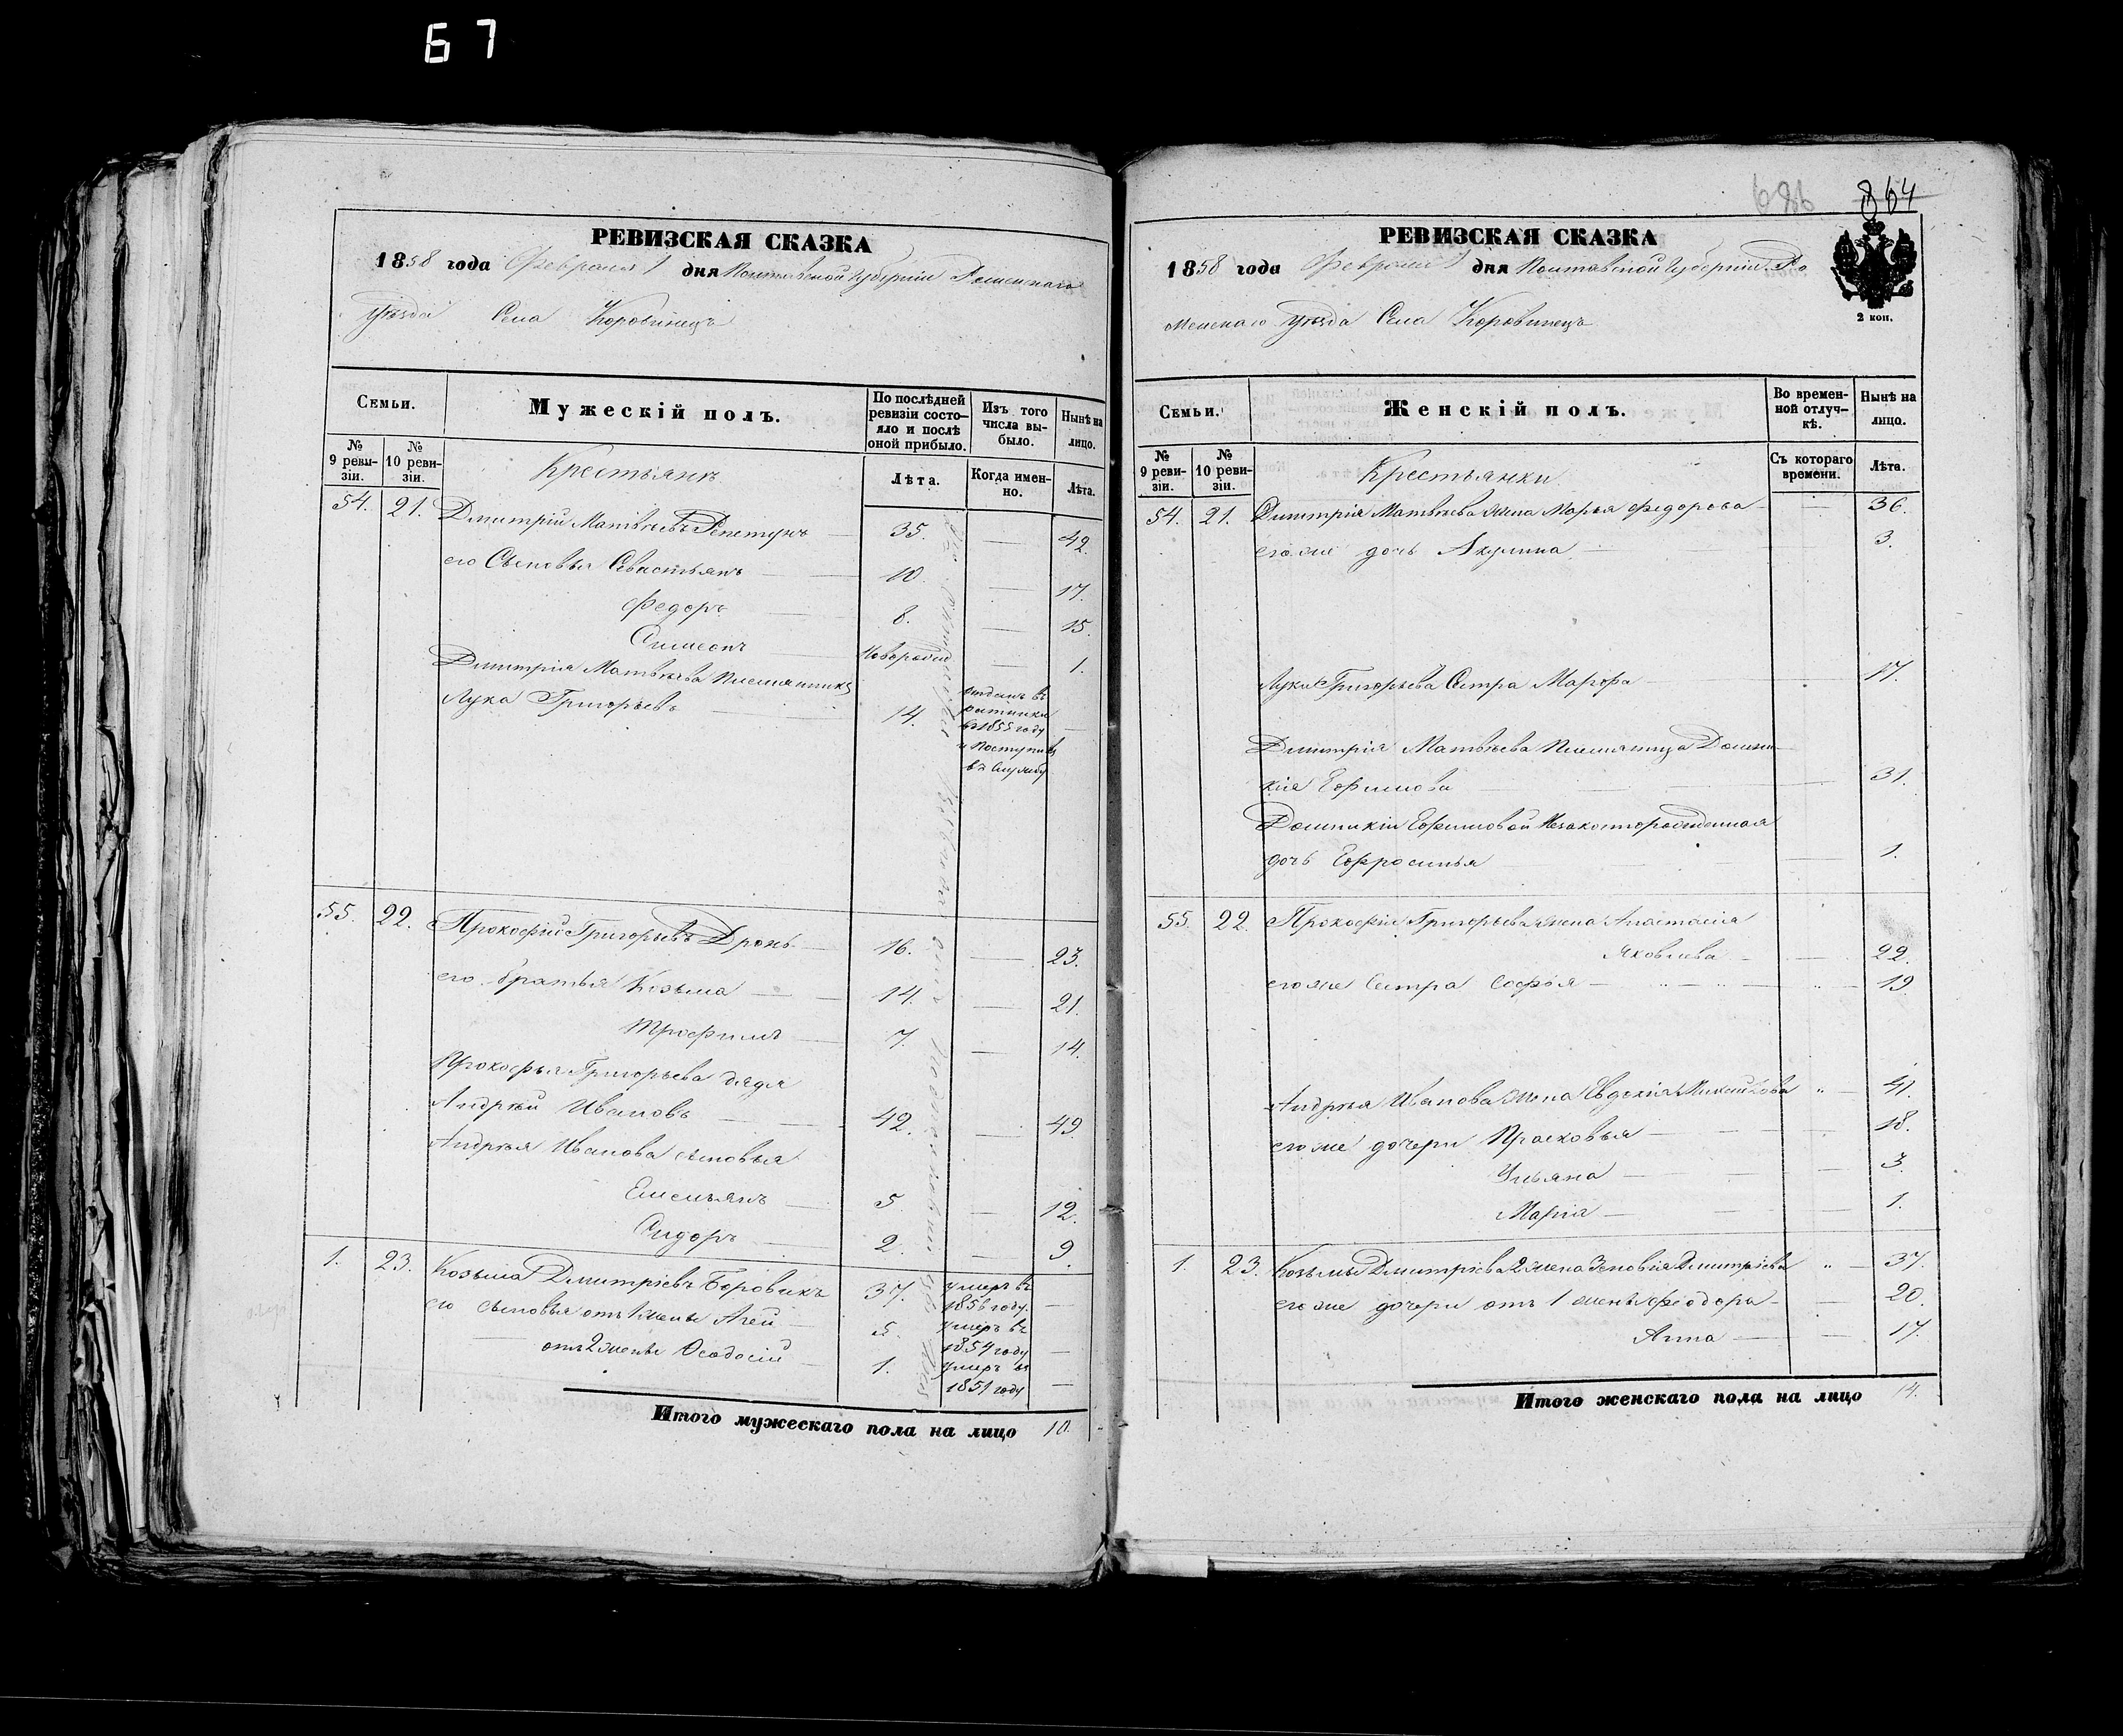 67
РЕВИЗСКАЯ СКАЗКА
1858 года Февраля 1 дня Полтавской Губернiи Роменскаго
Уѣзда Села Коровинецъ
Семьи.
Мужескiй полъ.
По послѣдней ревизiи состо-
яло и послѣ
оной прибыло.
Изъ того
числа вы-
было.
Нынѣ на
лицо.
№
9 реви-
зiи.
№
10 реви-
зiи.
Крестьянъ
Лѣта.
Когда имен-
но.
Лѣта.
54. 21. Дмитрiй Матвѣевъ Репетунъ — 35. — 42.
его Сыновья Севастьянъ — 10. — 17.
Федоръ — 8. — 15.
Симеонъ — Новорожд — 1.
Дмитрiя Матвѣева Племянникъ
Лука Григорьевъ — 14. —
отданъ въ
ратники
въ 1855 году
и поступилъ
въ службу
55. 22. Прокофiй Григорьевъ Дронь — 16. — 23.
его братья Козьма — 14. — 21.
Трофимъ — 7. — 14.
Прокофья Григорьева дядя
Андрѣй Ивановъ — 42. — 49.
Андрѣя Иванова сыновья
Емельянъ — 5. — 12.
Сидоръ — 2. — 9.
1. 23. Козьма Дмитрiевъ Боровикъ 37. умеръ въ
1856 году. —
его сыновья отъ 1 жены Агей — 5. умеръ въ
1854 году —
отъ 2 жены Ѳеодосiй — 1. умеръ въ
1851 году —
Итого мужескаго пола на лицо 10.
686 864
РЕВИЗСКАЯ СКАЗКА
1858 года Февраля 1 дня Полтавской Губернiи Ро
менскаго Уѣзда Села Коровинецъ
2 коп.
Семьи.
Женскiй полъ.
Во времен-
ной отлуч-
кѣ.
Нынѣ на
лицо.
№
9 реви-
зiи.
№
10 реви-
зiи.
Крестьянки
Съ котораго
времени.
Лѣта.
54. 21. Дмитрiя Матвѣева жена Марья Федорова — 36.
его же дочь Акулина — 3.
Луки Григорьева Сестра Марфа — 17.
Дмитрiя Матвѣева Племянница Домни-
кiя Ефимова — 31.
Домникiи Ефимовой Незаконнорожденная
дочь Ефросинья — 1.
55. 22. Прокофiя Григорьева жена Анастасiя
Яковлева — 22.
его же Сестра Софья — 19
Андрѣя Иванова жена Евдокiя Михайлова " — 41.
его же дочери Прасковья — 18.
Ульяна — 3.
Марiя — 1.
1. 23. Козьмы Дмитрiева 2 жена Зеновiя Дмитрiева " — 37.
его же дочери отъ 1 жены Феодора — 20.
Анна — 17.
Итого женскаго пола на лицо 14.